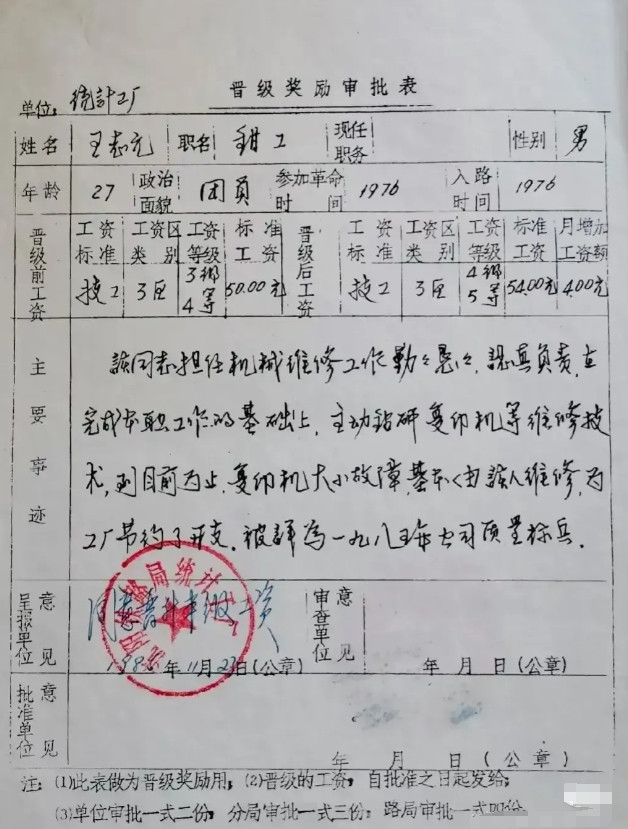 晋级奖励审批表
单位: 统计工厂
姓名 王志元 职名 钳工 现任职务 性别 男
年龄 27 政治面貌 团员 参加革命时间 1976 入路时间 1976
晋级前工资 工资标准 工资区类别 工资等级 标准工资 晋级后工资 工资标准 工资区类别 工资等级 标准工资 月增加工资额
技工 3区 3级4等 50.00元 技工 3区 4级5等 54.00元 4.00元
主要事迹
該同志担任机械维修工作勤々恳々，認真負責，在
完成本职工作的基础上，主动钻研复印机等维修技
术，到目前为止，复印机大小故障，基本々由該人维修，为
工厂节约了开支，被評为一九八五年公司质量标兵．
呈报单位意见 同意晋升半级工资 审查单位意见
路局统计工
198 年11月23日(公章) 年 月 日(公章)
批准单位意见
年 月 日(公章)
注: (1)此表做为晋级奖励用; (2)晋级的工资; 自批准之日起发给;
(3)单位审批一式二份; 分局审批一式三份; 路局审批一式四份